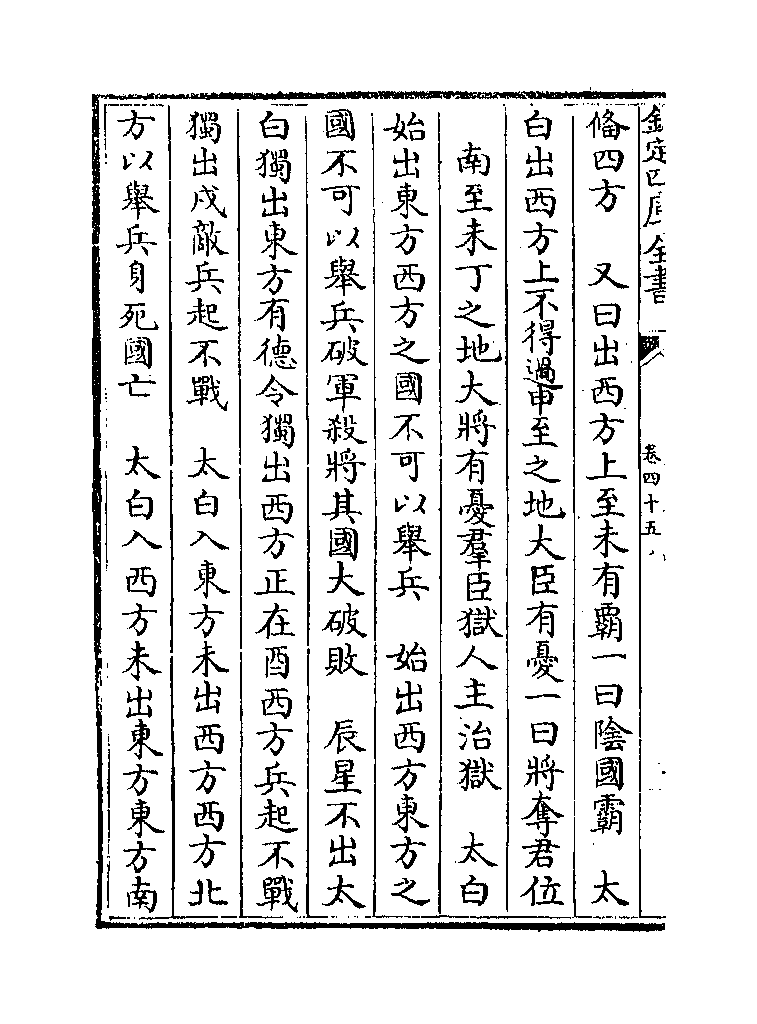 欽定四庫全書
卷四十五
脩四方　又曰出西方上至未有霸一曰陰國霸　太
白出西方上不得過申至之地大臣有憂一曰將奪君位
南至未丁之地大將有憂羣臣獄人主治獄　太白
始出東方西方之國不可以舉兵　始出西方東方之
國不可以舉兵破軍殺將其國大破敗　辰星不出太
白獨出東方有德令獨出西方正在酉西方兵起不戰
獨出戌敵兵起不戰　太白入東方未出西方西方北
方以舉兵身死國亡　太白入西方未出東方東方南